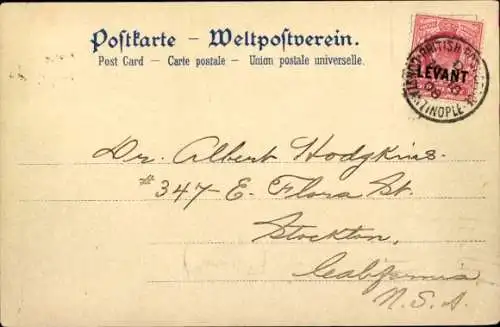 Postkarte - Weltpostverein.
Post Card — Carte postale — Union postale universelle.
LEVANT
BRITISH POST
Dr. Albert Hodgkins.
#347- E- Flora St.
Stockton,
California
U. S. A.